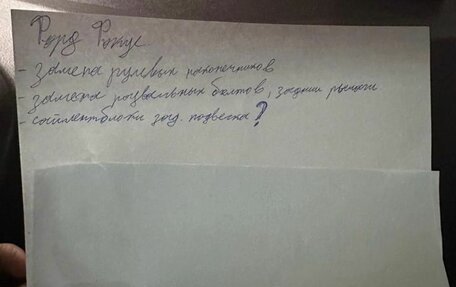 Форд Фокус
- замена рулевых наконечников
- замена развальных болтов, задние рычаги
- сайлентблоки зад. подвеска?